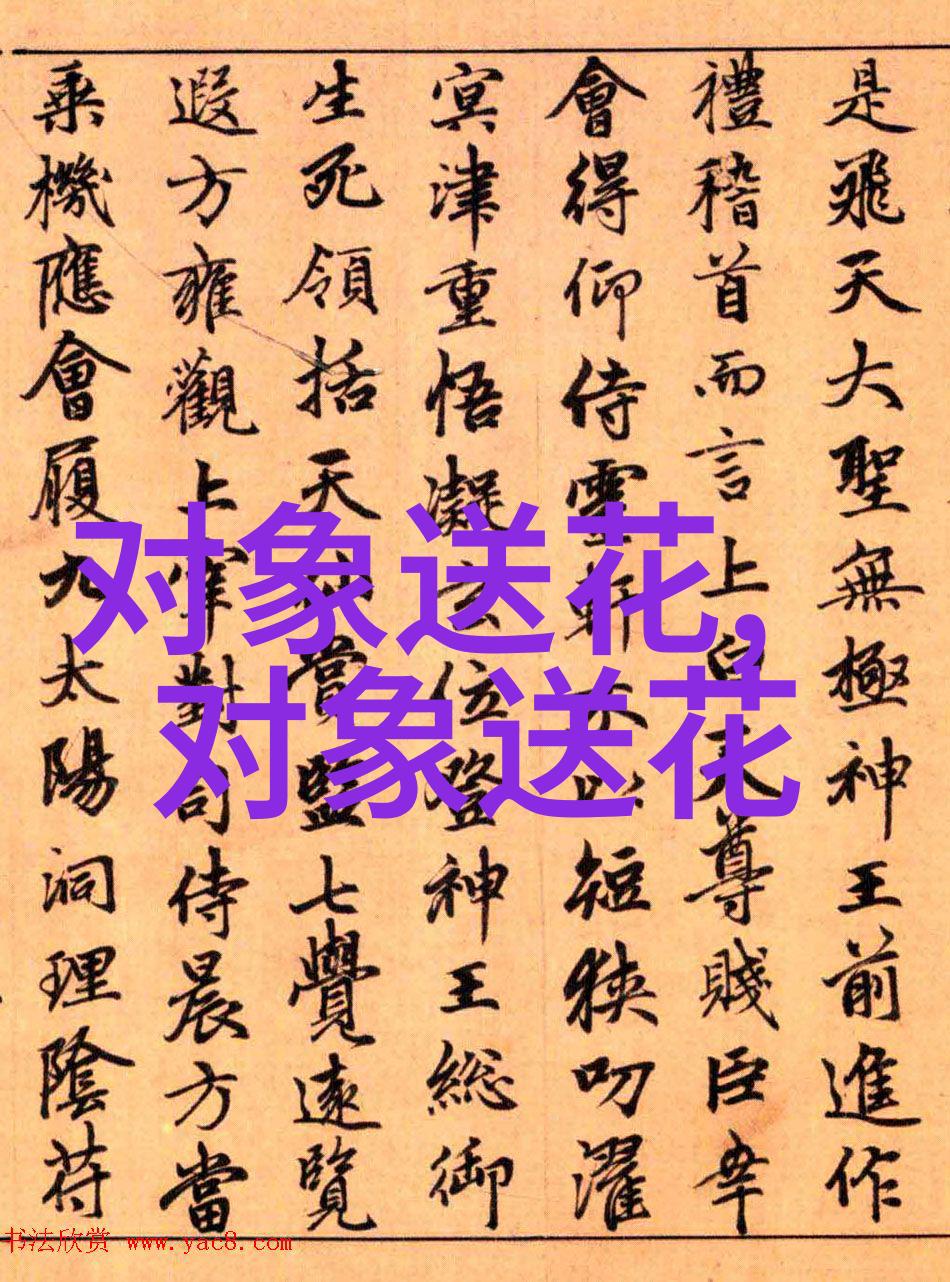 是飛天大聖無極神王前進作
禮稽首而言上白天尊賤臣幸
會得仰侍靈軒不以短狹叨濯
冥津重悟凝玄位登神王総御
生死領括天 當監七覺遠覽
遐方雍觀上宰對司侍晨方當
乗機應會履九太陽洞理陰苻
对象送花,
对象送花
书法欣赏 www.yac8.com